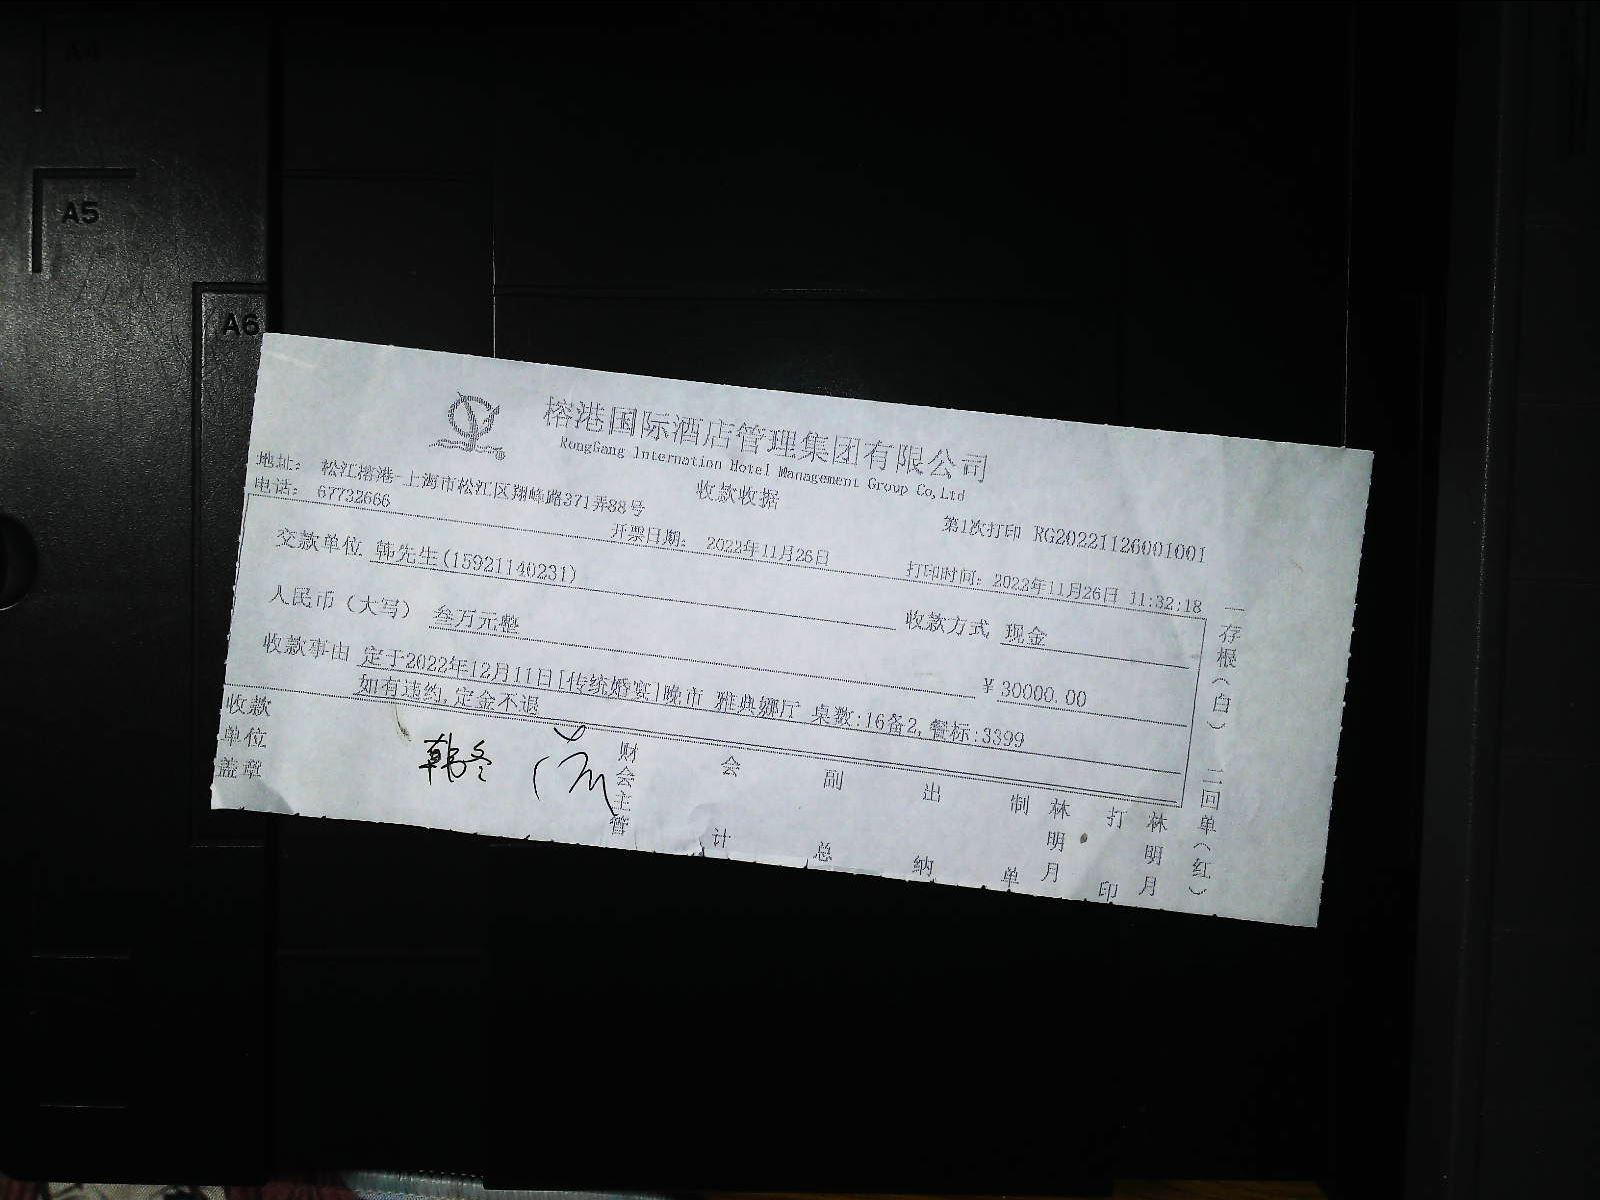 A5
A6
榕港国际酒店管理集团有限公司
RongGang Internation Hotel Management Group Co,Ltd
收款收据
地址: 松江榕港-上海市松江区翔峰路371弄88号
电话: 67732666
第1次打印 RG20221126001001
开票日期: 2022年11月26日
打印时间: 2022年11月26日 11:32:18
交款单位 韩先生(15921140231)
收款方式 现金
人民币(大写) 叁万元整
¥30000.00
收款事由 定于2022年12月11日[传统婚宴]晚市 雅典娜厅 桌数:16备2,餐标:3399
如有违约,定金不退
收款单位盖章
韩冬
财会主管
会计
副总
出纳
制单
林明月
打印
林明月
一存根(白) 二回单(红)